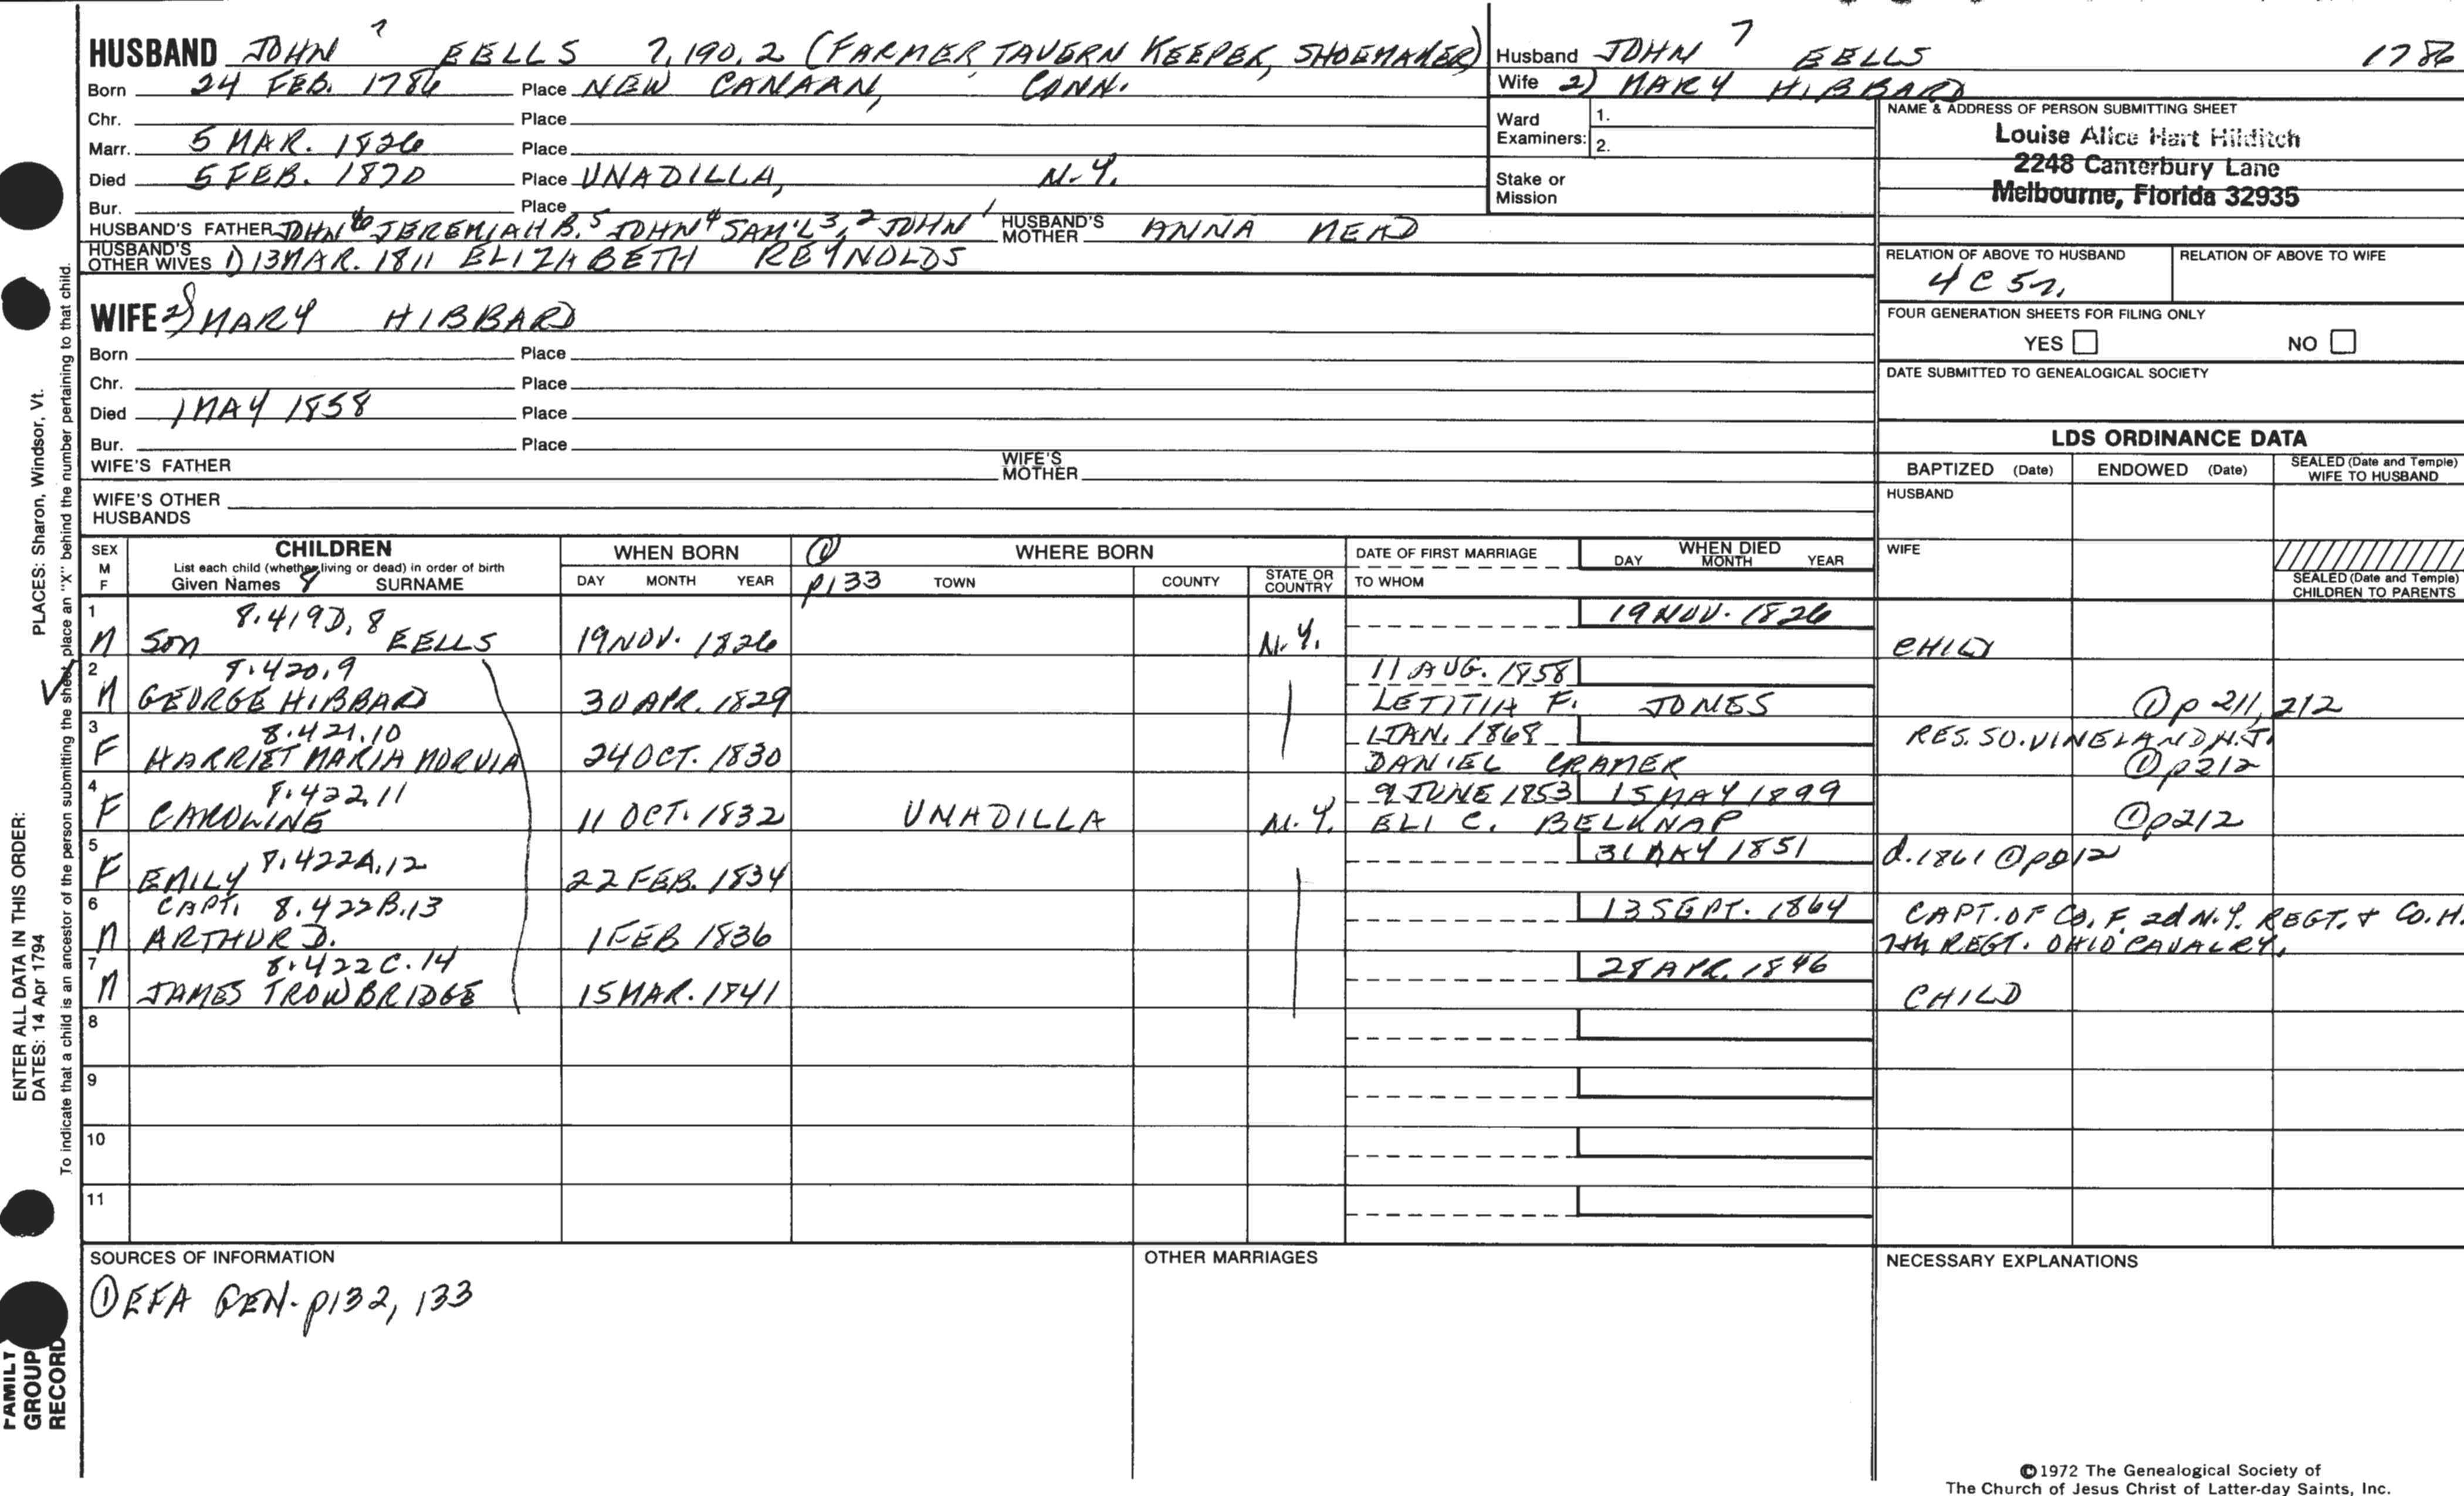 HUSBAND JOHN 7 EELLS 7.190.2 (FARMER, TAVERN KEEPER, SHOEMAKER)
Born 24 FEB. 1786 Place NEW CANAAN, CONN.
Chr. Place
Marr. 5 MAR. 1826 Place
Died 5 FEB. 1870 Place UNADILLA, N.Y.
Bur. Place
HUSBAND'S FATHER JOHN 6 JEREMIAH B. 5 JOHN 4 SAM'L 3, 2 JOHN 1 HUSBAND'S MOTHER ANNA MEAD
HUSBAND'S OTHER WIVES 1) 13 MAR. 1811 ELIZABETH REYNOLDS
Husband JOHN 7 EELLS 1786
Wife 2) MARY HIBBARD
Ward Examiners: 1.
2.
Stake or Mission
NAME & ADDRESS OF PERSON SUBMITTING SHEET
Louise Alice Hart Hilditch
2248 Canterbury Lane
Melbourne, Florida 32935
RELATION OF ABOVE TO HUSBAND RELATION OF ABOVE TO WIFE
4 C 5r.
FOUR GENERATION SHEETS FOR FILING ONLY
YES NO
DATE SUBMITTED TO GENEALOGICAL SOCIETY
WIFE 2) MARY HIBBARD
Born Place
Chr. Place
Died 1 MAY 1858 Place
Bur. Place
WIFE'S FATHER WIFE'S MOTHER
WIFE'S OTHER HUSBANDS
LDS ORDINANCE DATA
BAPTIZED (Date) ENDOWED (Date) SEALED (Date and Temple) WIFE TO HUSBAND
HUSBAND
WIFE
SEALED (Date and Temple) CHILDREN TO PARENTS
SEX M F
CHILDREN
List each child (whether living or dead) in order of birth
Given Names 8 SURNAME
WHEN BORN
DAY MONTH YEAR
① WHERE BORN
p133 TOWN COUNTY STATE OR COUNTRY
DATE OF FIRST MARRIAGE
TO WHOM
WHEN DIED
DAY MONTH YEAR
1 8.419D, 8 19 NOV. 1826
M SON EELLS 19 NOV. 1826 N.Y. CHILD
2 8.420.9 11 AUG. 1858
M GEORGE HIBBARD 30 APR. 1829 LETITIA F. JONES ① p 211, 212
3 8.421.10 1 JAN. 1868 RES. SO. VINELAND N.J.
F HARRIET MARIA NORVIA 24 OCT. 1830 DANIEL CRAMER ① p212
4 8.422.11 9 JUNE 1853 15 MAY 1899
F CAROLINE 11 OCT. 1832 UNADILLA N.Y. ELI C. BELKNAP ① p212
5 31 MAY 1851 d. 1861 ① p212
F EMILY 8.422A.12 22 FEB. 1834
6 CAPT. 8.422B.13 13 SEPT. 1864 CAPT. OF CO. F. 2d N.Y. REGT. & CO. H.
M ARTHUR D. 1 FEB 1836 7th REGT. OHIO CAVALRY.
7 8.422C.14 28 APR. 1846
M JAMES TROWBRIDGE 15 MAR. 1841 CHILD
8
9
10
11
SOURCES OF INFORMATION
① EFA GEN. p132, 133
OTHER MARRIAGES
NECESSARY EXPLANATIONS
©1972 The Genealogical Society of
The Church of Jesus Christ of Latter-day Saints, Inc.
ENTER ALL DATA IN THIS ORDER:
PLACES: Sharon, Windsor, Vt.
DATES: 14 Apr 1794
To indicate that a child is an ancestor of the person submitting the sheet, place an "X" behind the number pertaining to that child.
FAMILY
GROUP
RECORD